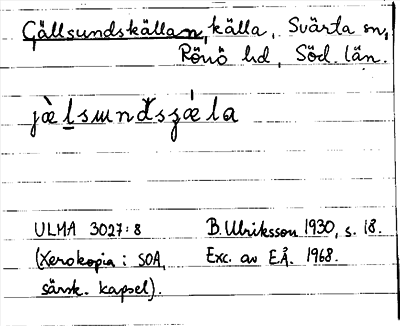 Gällsundskällan, källa, Svärta sn,
Rönö hd, Söd. län.
jæ̀lsɯndsʒǽla
ULMA 3027:8 B. Ulriksson 1930, s. 18.
(Xerokopia: SOA, Exc. av E.Å. 1968.
särsk. kapsel).